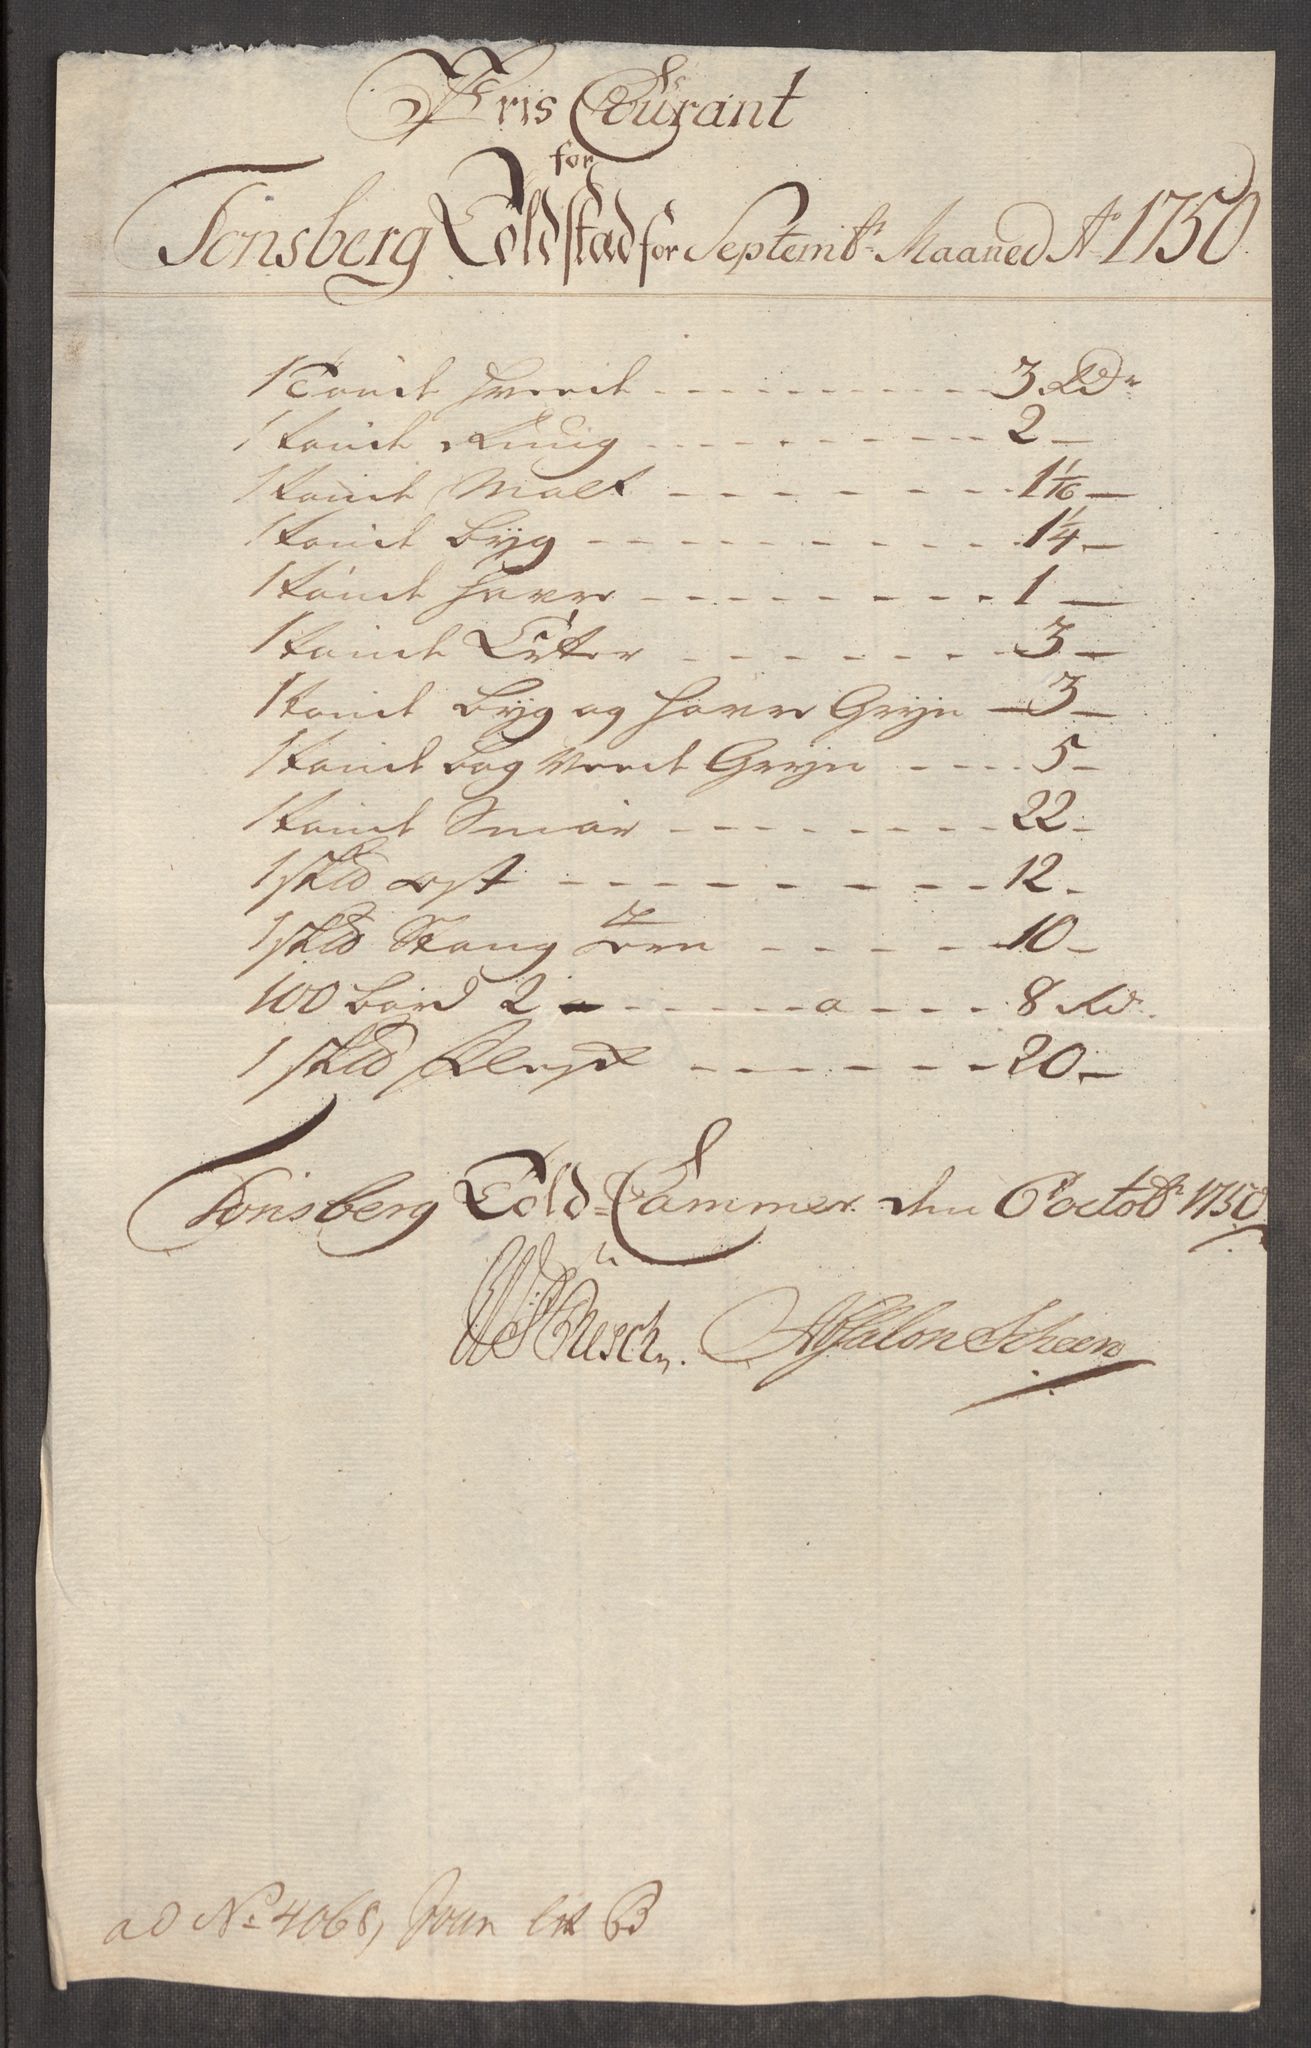 Pris Courant
for
Tonsberg Toldstad for Septembr. Maaned Ao 1750
1 Tønde Hvede 3 Rdr
1 tønde Rug 2 —
1 tønde Malt 1 1/16 —
1 tønde Byg 1 1/4 —
1 tønde Havre 1 —
1 tønde Erter 3 —
1 tønde Byg og Havre Gryn 3 —
1 tønde Bog Vede Gryn 5 —
1 tønde Smør 22 —
1 skld ost 12 —
1 skld Stang 10 —
100 Bord 2 a 8 Rd.
1 skld 20 —
Tonsberg Told-Cammer den 6t octobr 1750
Absalon Scheen
ad No 4068, Jour lit B